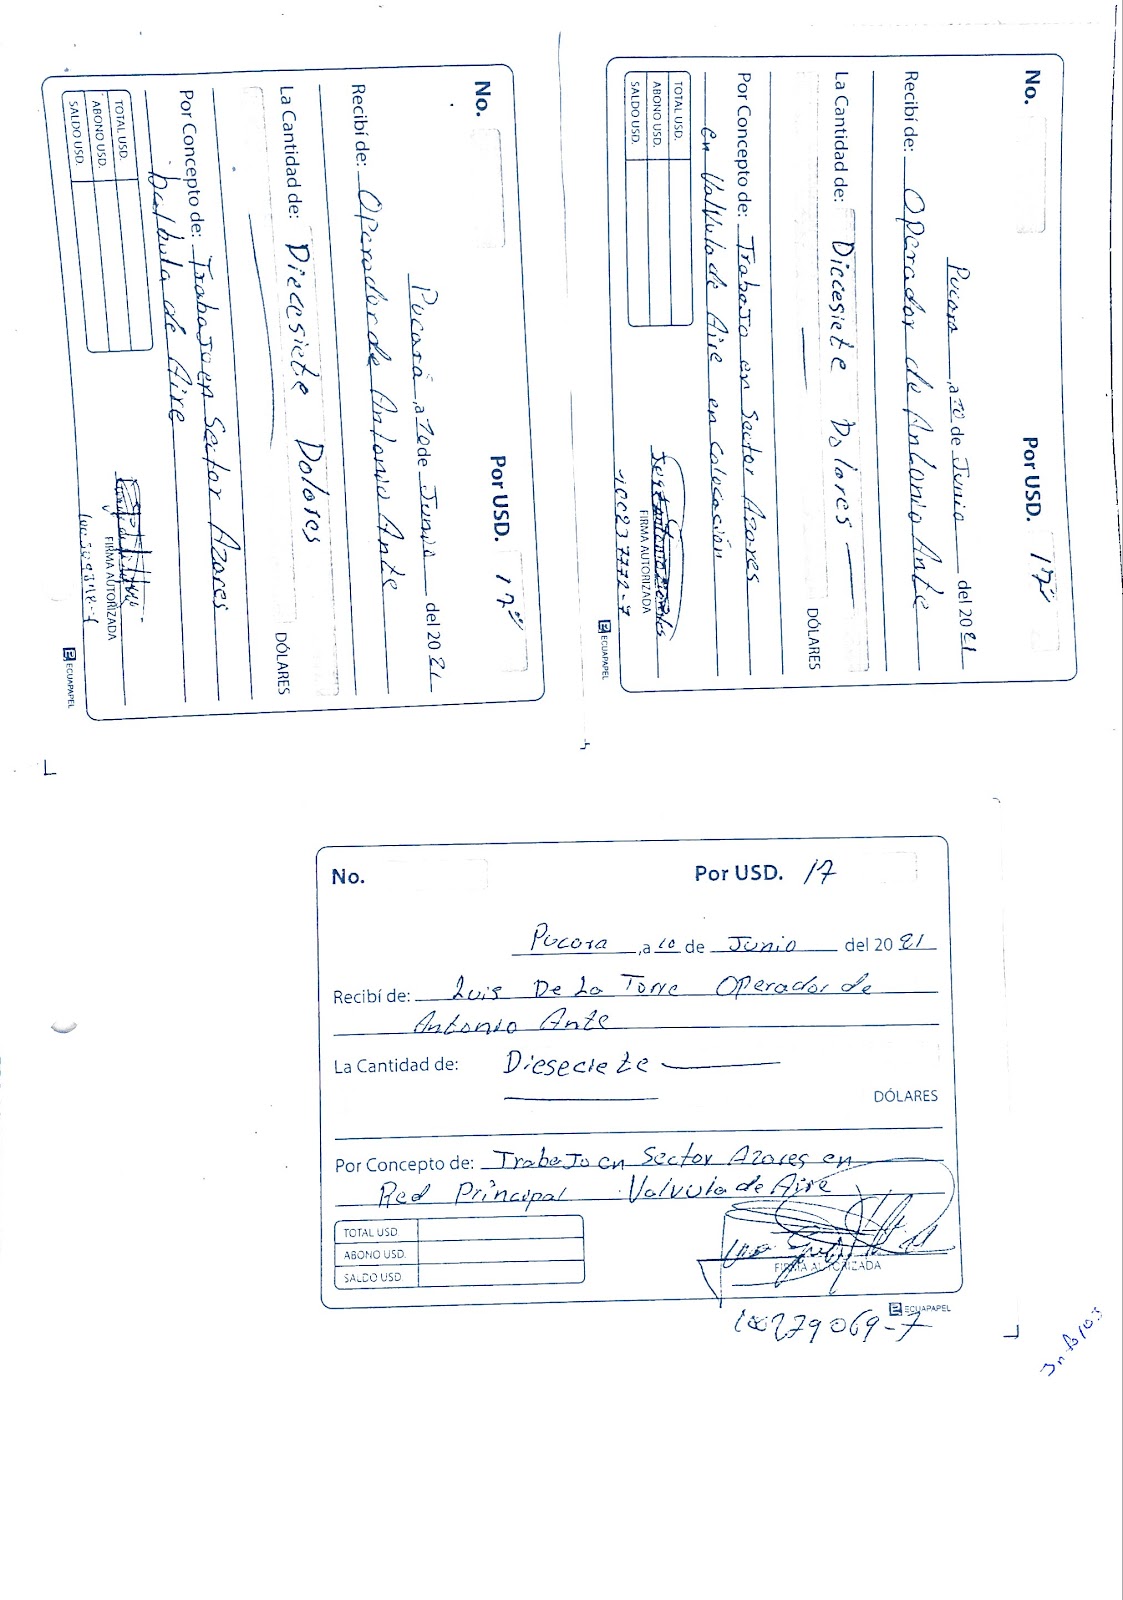 No.
Por USD. 17,00
Pucara, a 10 de Junio del 2021
Recibí de: Operador de Antonio Ante
La Cantidad de: Diecesiete Dolores
DÓLARES
Por Concepto de: Trabajo en Sector Azares
balbula de Aire
TOTAL USD.
ABONO USD.
SALDO USD.
FIRMA AUTORIZADA
ECUAPAPEL
No.
Por USD. 17,00
Pucara, a 10 de Junio del 2021
Recibí de: Operador de Antonio Ante
La Cantidad de: Diecesiete Dolores
DÓLARES
Por Concepto de: Trabajo en Sector Azares
en Valvula de Aire en colocación
TOTAL USD.
ABONO USD.
SALDO USD.
FIRMA AUTORIZADA
100237772-7
ECUAPAPEL
No.
Por USD. 17
Pucara, a 10 de Junio del 2021
Recibí de: Luis De La Torre Operador de
Antonio Ante
La Cantidad de: Dieseciete
DÓLARES
Por Concepto de: Trabajo en Sector Azares en
Red Principal Valvula de Aire
TOTAL USD
ABONO USD.
SALDO USD.
FIRMA AUTORIZADA
100279069-7
ECUAPAPEL